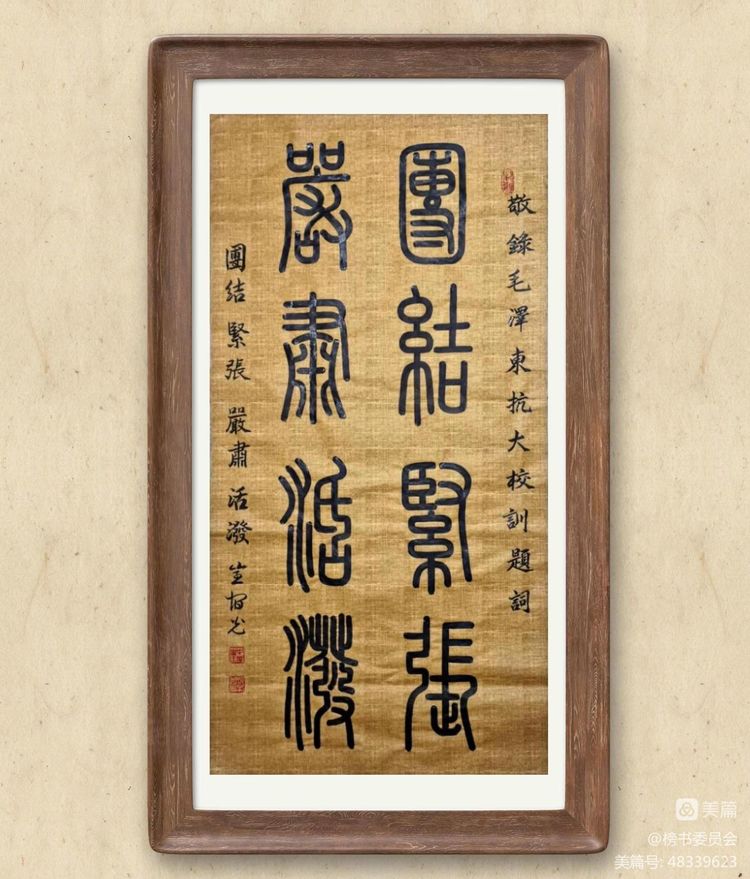 敬錄毛澤東抗大校訓題詞
團結緊張
嚴肅活潑
團結 緊張 嚴肅 活潑
美篇
@榜书委员会
美篇号: 48339623